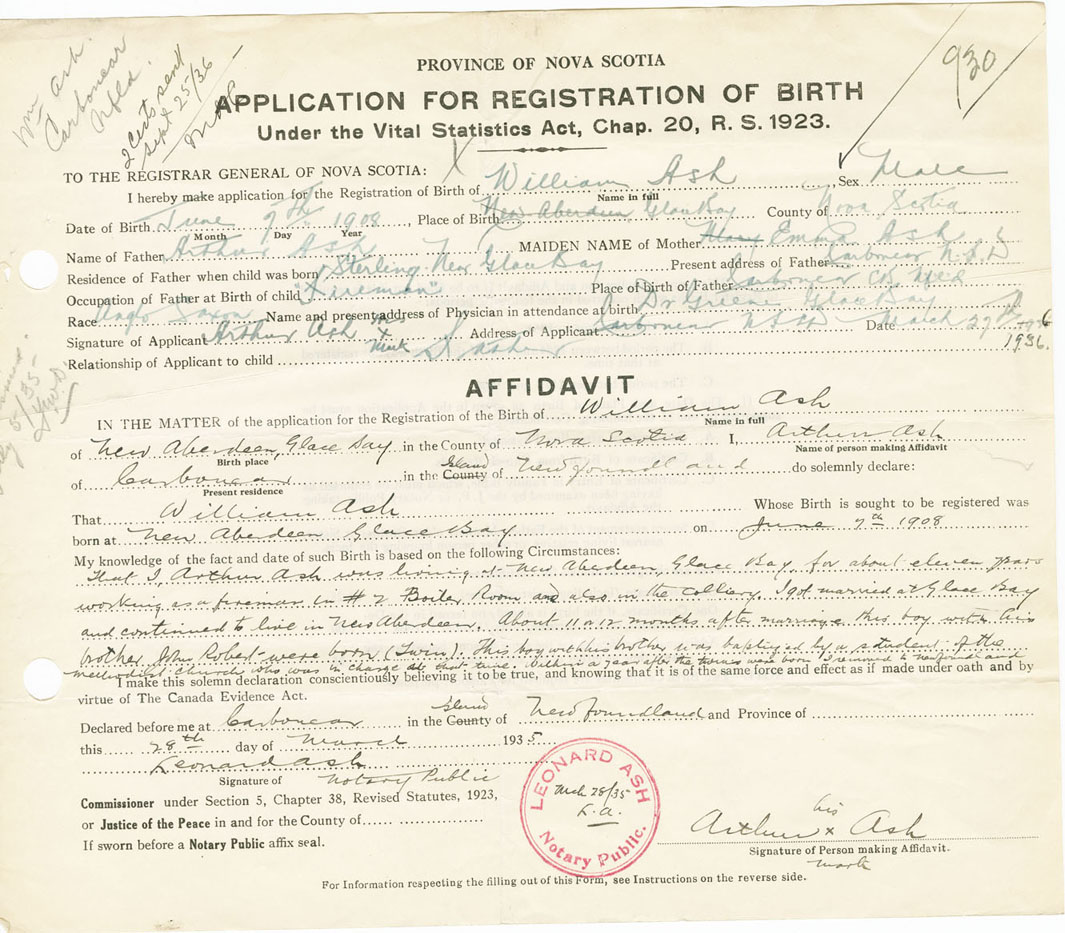 Wm Ash.
Carbonear
Nfld.
2 Certs sent
Sept 25/36
930
PROVINCE OF NOVA SCOTIA
APPLICATION FOR REGISTRATION OF BIRTH
Under the Vital Statistics Act, Chap. 20, R. S. 1923.
TO THE REGISTRAR GENERAL OF NOVA SCOTIA:
I hereby make application for the Registration of Birth of William Ash Sex Male
Name in full
Date of Birth June 7th 1908 Place of Birth New Aberdeen Glace Bay County of Nova Scotia
Month Day Year
Name of Father Arthur Ash MAIDEN NAME of Mother Mary Emma Ash
Residence of Father when child was born Sterling New Glace Bay Present address of Father Carbonear
Occupation of Father at Birth of child "Fireman" Place of birth of Father Carbonear
Race Anglo Saxon Name and present address of Physician in attendance at birth Dr Greene Glace Bay
Signature of Applicant Arthur Ash his x mark Address of Applicant Carbonear Date March 27th
1936.
Relationship of Applicant to child
AFFIDAVIT
IN THE MATTER of the application for the Registration of the Birth of William Ash
Name in full
of New Aberdeen, Glace Bay in the County of Nova Scotia I, Arthur Ash
Birth place Name of person making Affidavit
of Carbonear in the Island County of Newfoundland do solemnly declare:
Present residence
That William Ash Whose Birth is sought to be registered was
born at New Aberdeen Glace Bay on June 7th 1908
My knowledge of the fact and date of such Birth is based on the following Circumstances:
That I, Arthur Ash was living at New Aberdeen, Glace Bay for about eleven years
working as a fireman in # 2 Boiler Room and also in the Colliery. I got married at Glace Bay
and continued to live in New Aberdeen. About 11 or 12 months after marriage this boy with his
brother John Robert were born (Twin). This boy with his brother was baptized by a student of the
methodist Church who was in charge at that time. Within a year after the twins were born I returned to Newfoundland
I make this solemn declaration conscientiously believing it to be true, and knowing that it is of the same force and effect as if made under oath and by
virtue of The Canada Evidence Act.
Declared before me at Carbonear in the Island County of Newfoundland and Province of
this 28th day of March 1935
Leonard Ash
Signature of Notary Public
Commissioner under Section 5, Chapter 38, Revised Statutes, 1923,
or Justice of the Peace in and for the County of
If sworn before a Notary Public affix seal.
LEONARD ASH
Mch 28/35
L.A.
Notary Public.
his
Arthur x Ash
Signature of Person making Affidavit.
mark
For Information respecting the filling out of this Form, see Instructions on the reverse side.